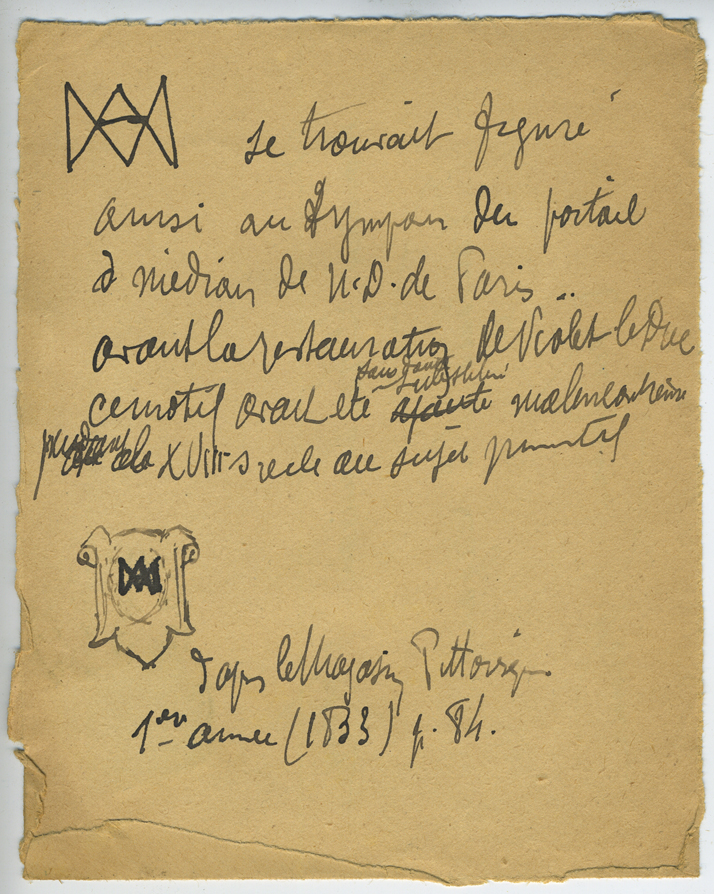 se trouvait figuré
aussi au Tympan du portail
médian de N.D. de Paris..
avant la restauration de Violet le Duc
sans doute
substitué
ce motif avait été ajouté malencontreus
pendant le XVIII siecle au sujet primitif
d'après le Magasin Pittoresque
1er année (1833) p. 84.